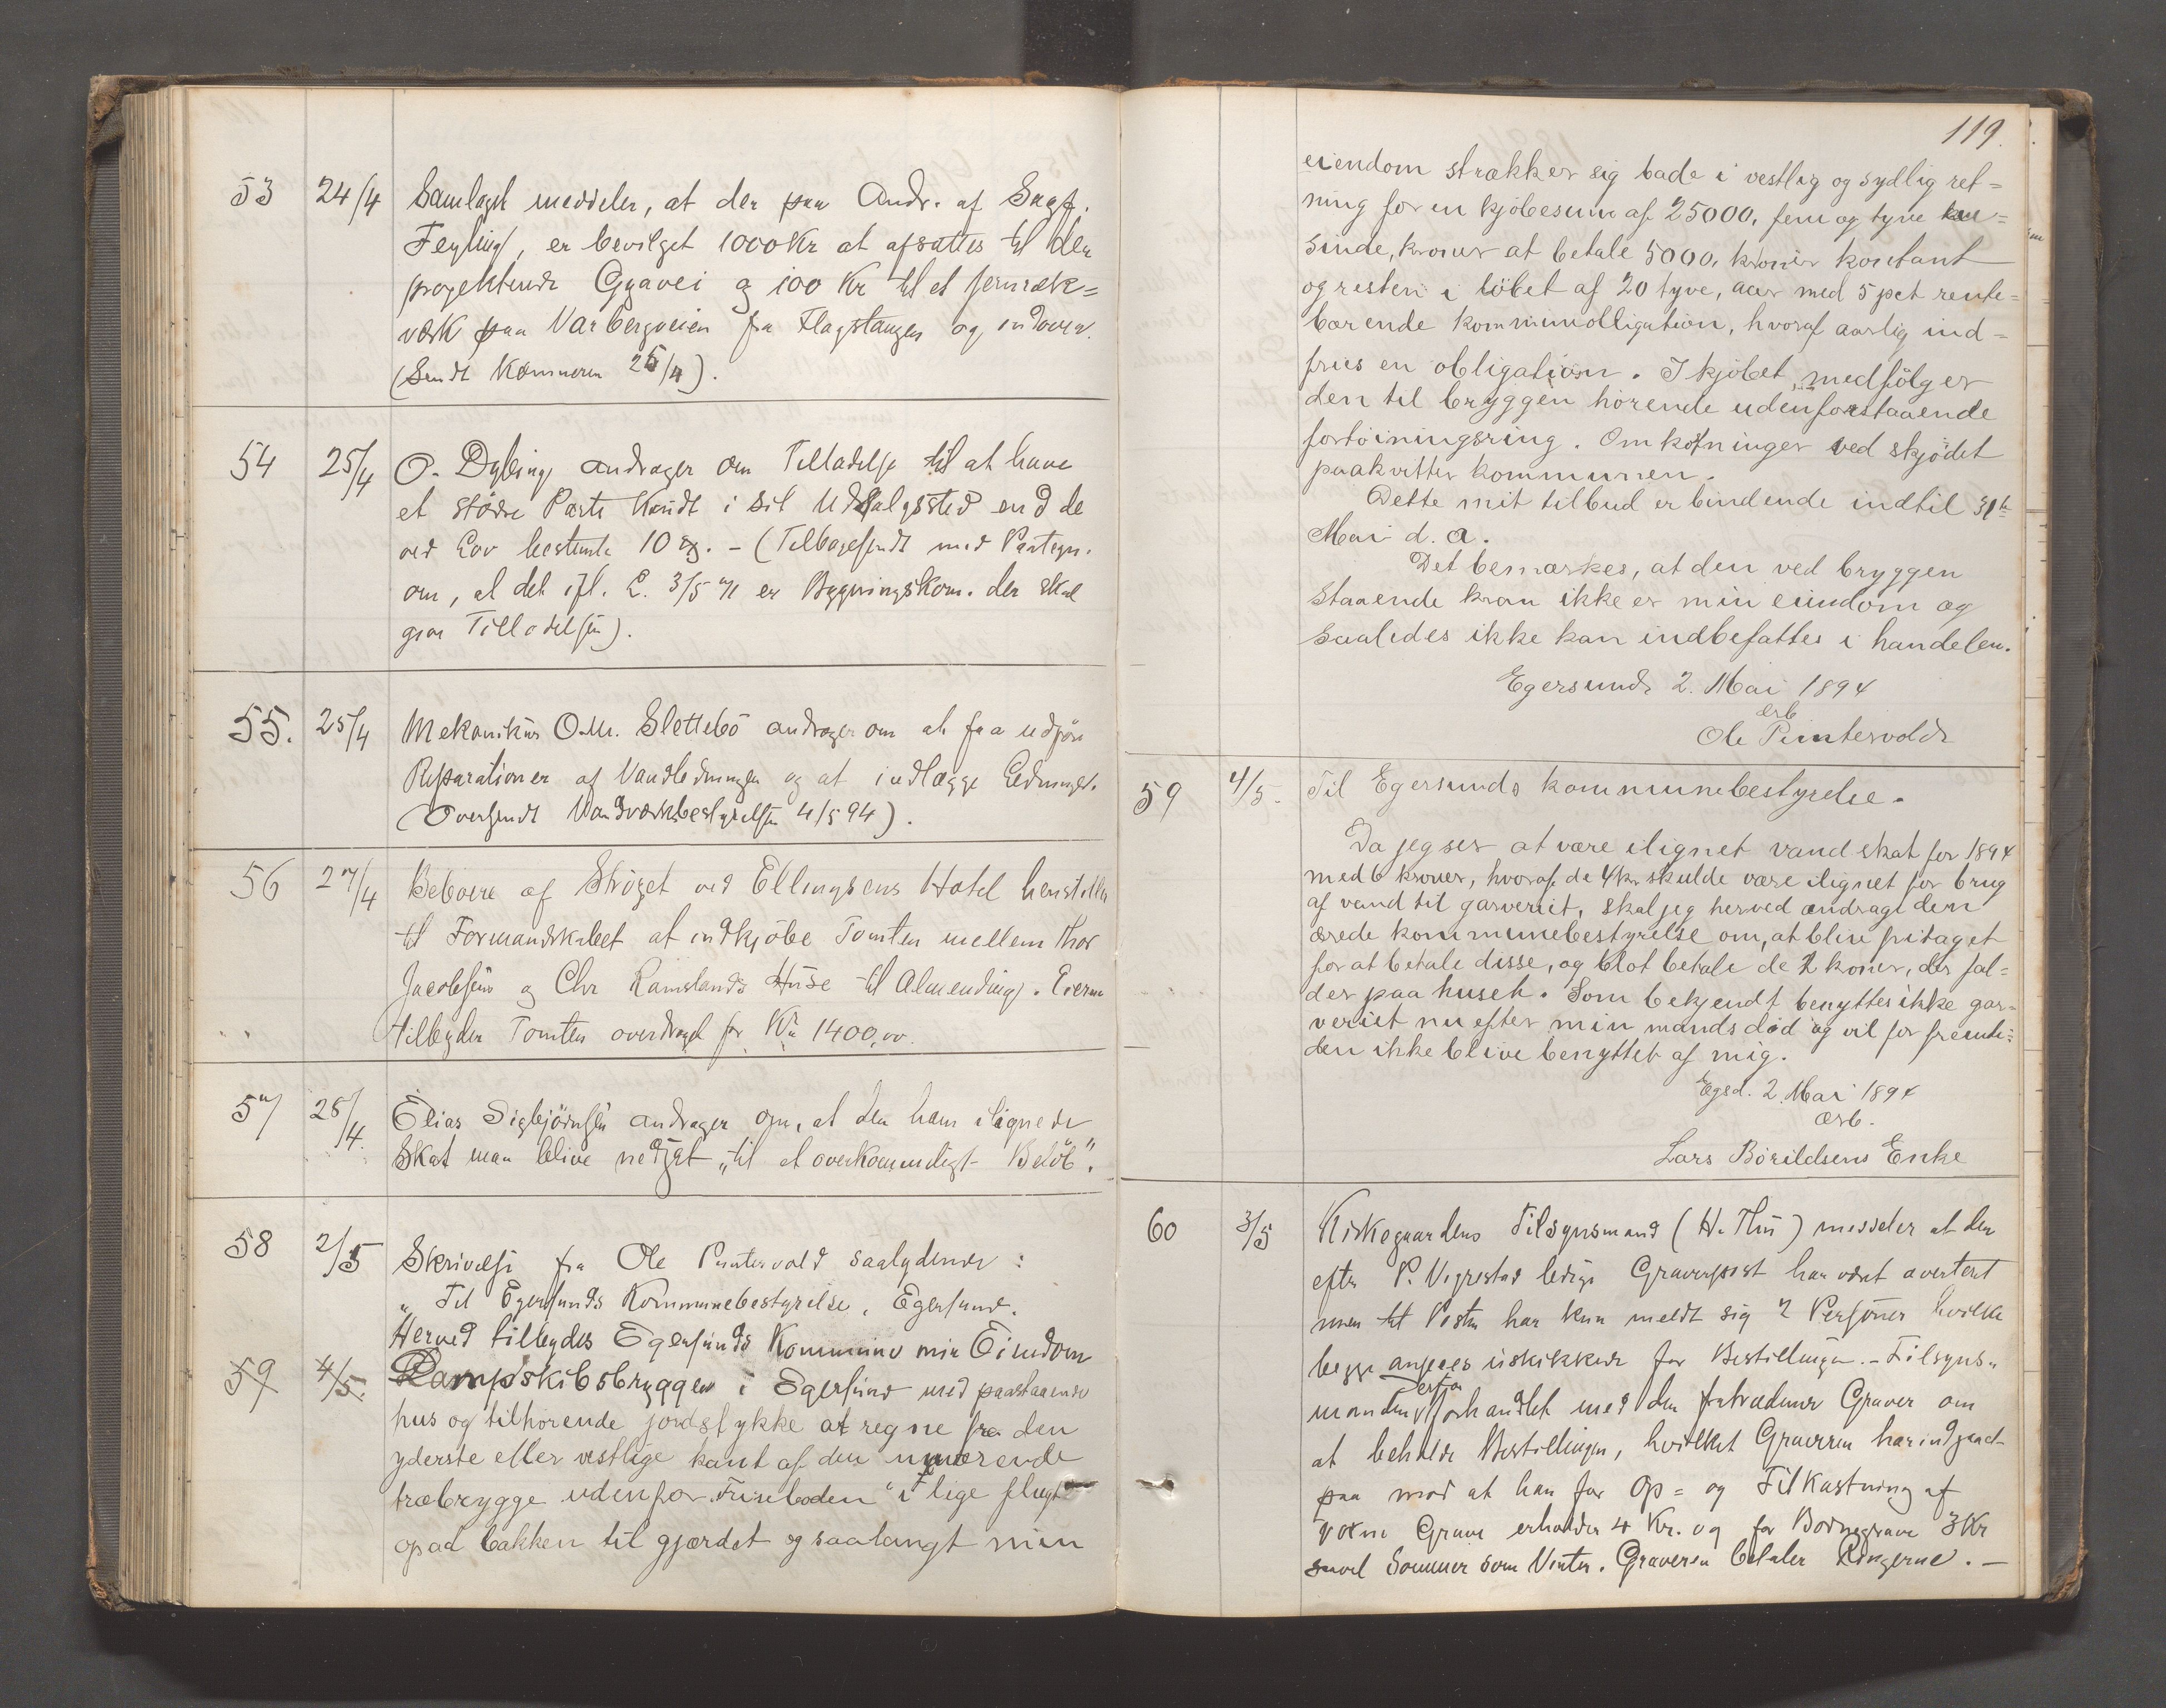 53 24/4 Samlaget meddeler, at der paa Andr. af Sagf.
Feyling, er bevilget 1000 Kr at afsættes til den
projekterede Gyavei og 100 Kr til et jernræk=
værk paa Varbergveien fra Flagstangen og indover.
(Sendt Kæmneren 25/4).
54 25/4 O. Dybing andrager om Tilladelse til at have
et større Parti Krudt i sit Udsalgssted end de
ved Lov bestemte 10 kg. - (Tilbagesendt med Paategn.
om, at det ifl. L. 3/5 71 er Bygningskom. der skal
give Tilladelsen).
55. 25/4 Mekanikus O.M. Slettebö andrager om at faa udföre
Reparationer af Vandledningen og at indlægge Ledninger.
(Oversendt Vandværksbestyrelsen 4/5 94).
56 27/4 Beboere af Strøget ved Ellingsens Hotel henstiller
til Formandskabet at indkjöbe Tomten mellem Thor
Jacobsens og Chr Ramslands Huse til Almending. Eieren
tilbyder Tomten overdraget for Kr 1400,00.
57 28/4. Elias Sigbjörnsen andrager om, at den ham ilignede
Skat maa blive nedsat „til et overkommeligt Belöb".
58 2/5 Skrivelse fra Ole Puntervold saalydende :
„ Til Egersunds Kommunebestyrelse, Egersund.
Herved tilbydes Egersunds Kommune min Eiendom
59 4/5. Dampskibsbryggen i Egersund med paastaaende
hus og tilhørende jordstykke at regne fra den
yderste eller vestlige kant af den nuværende
træbrygge udenfor „Friseboden" i lige flugt
opad bakken til gjærdet og saalangt min
119.
eiendom strækker sig bade i vestlig og sydlig ret=
ning for en kjöbesum af 25000, fem og tyve tu=
sinde, kroner at betale 5000, kroner kontant
og resten i löbet af 20 tyve, aar med 5 pct rente=
bærende kommunolligation, hvoraf aarlig ind=
fries en obligation. I kjöbet medfölger
den til bryggen hörende udenforstaaende
fortöiningsring. Omkotninger ved skjödet
paakvitter kommunen.
Dette mit tilbud er bindende indtil 31te
Mai d. a.
Det bemærkes, at den ved bryggen
staaende kran ikke er min eiendom og
saaledes ikke kan indbefattes i handelen.
Egersund 2. Mai 1894
erb
Ole Puntervold
59 4/5. Til Egersunds kommunebestyrelse.
Da jeg ser at være ilignet vandskat for 1894
med 6 kroner, hvoraf de 4 kr. skulde være ilignet for brug
af vand til garveriet, skal jeg herved andrage den
ærede kommunebestyrelse om, at blive fritaget
for at betale disse, og blot betale de 2 kroner, der fal=
der paa huset. Som bekjendt benyttes ikke gar=
veriet nu efter min mands död og vil for fremti=
den ikke blive benyttet af mig.
Egsd. 2. Mai 1894
ærb.
Lars Börildsens Enke
60 3/5 Kirkegaardens Tilsynsmand (H. Thu) meddeler at den
efter P. Vegrestad ledige Graverpost har været averteret
men til Posten har kun meldt sig 2 Personer hvilke
begge ansees uskikkede for Bestillingen. - Tilsyns=
manden derfor forhandlet med den fratrædende Graver om
at beholde Bestillingen, hvilket Graveren har indgaaet
paa mod at han for Op= og Tilkastning af
voxne Grave erholder 4 Kr. og for Børnegrave 3 Kr
saavel Sommer som Vinter. Graveren betaler Ringerne. -